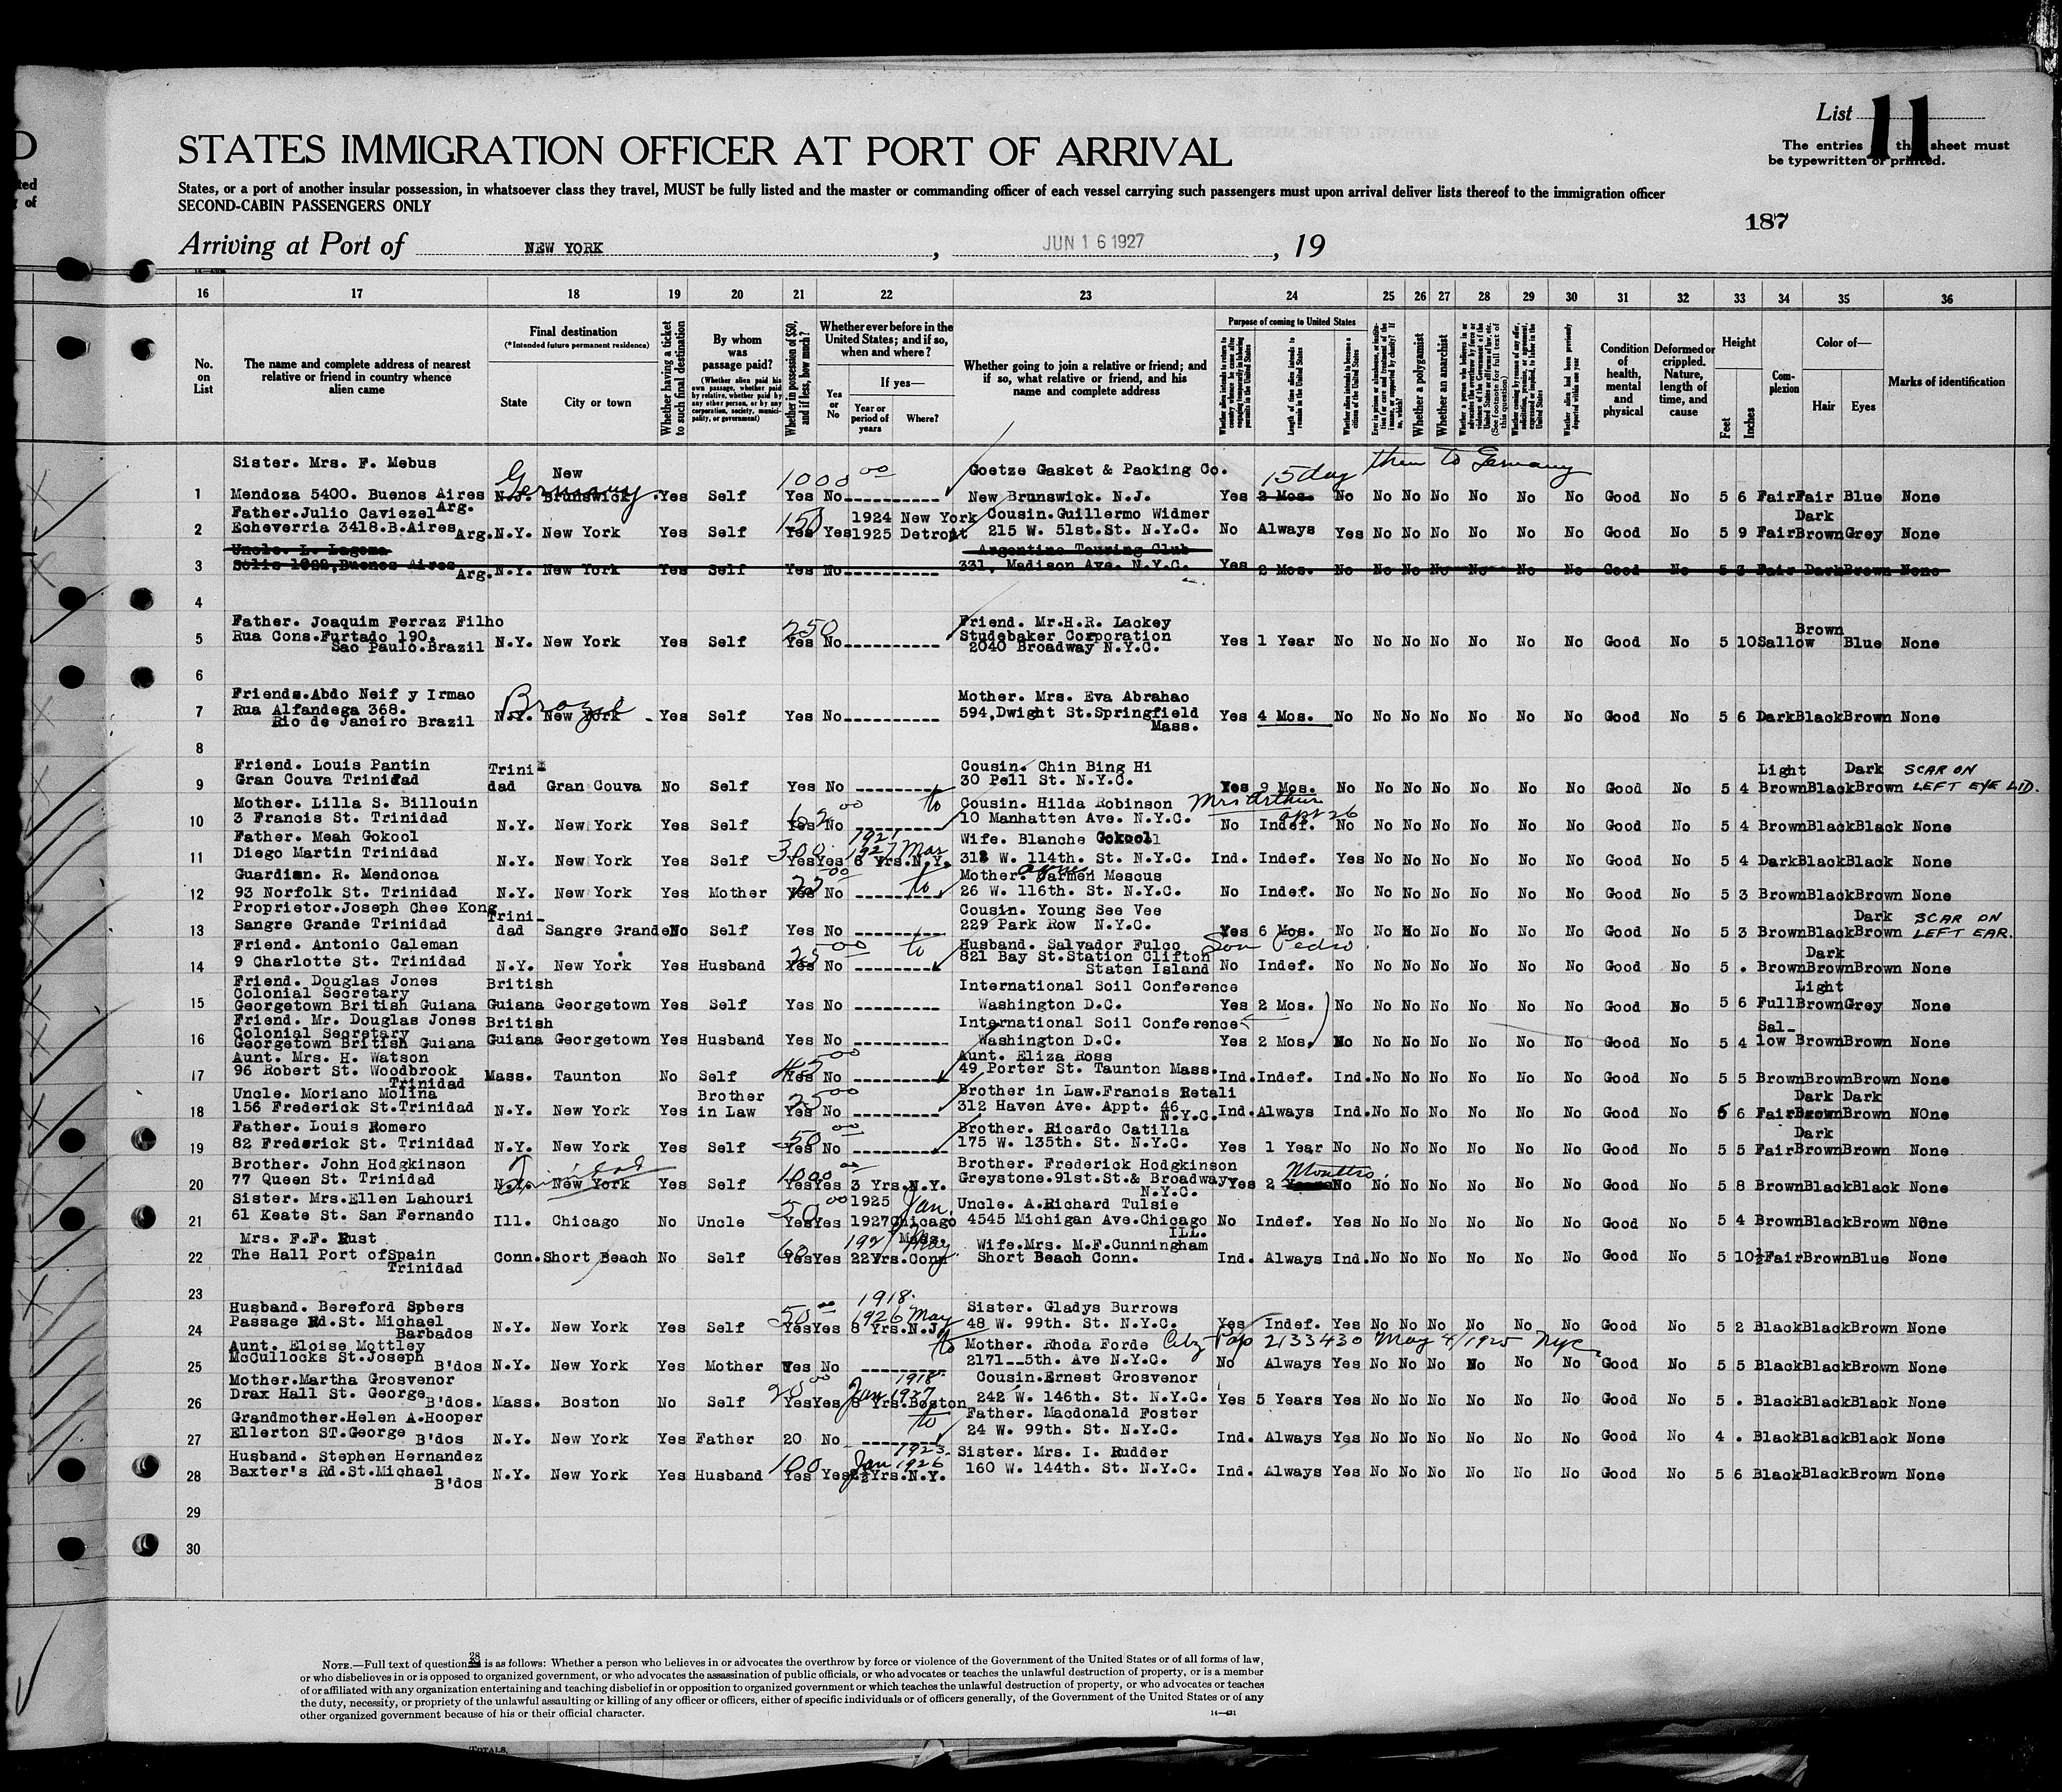 List 11
The entries on this sheet must
be typewritten or printed.
STATES IMMIGRATION OFFICER AT PORT OF ARRIVAL
States, or a port of another insular possession, in whatsoever class they travel, MUST be fully listed and the master or commanding officer of each vessel carrying such passengers must upon arrival deliver lists thereof to the immigration officer
SECOND-CABIN PASSENGERS ONLY
187
Arriving at Port of NEW YORK, JUN 16 1927, 19
16 17 18 19 20 21 22 23 24 25 26 27 28 29 30 31 32 33 34 35 36
No. on List
The name and complete address of nearest relative or friend in country whence alien came
Final destination
(*Intended future permanent residence)
State
City or town
Whether having a ticket to such final destination
By whom was passage paid?
(Whether alien paid his own passage, whether paid by relative, whether paid by any other person, or by any corporation, society, municipality, or government)
Whether in possession of $50, and if less, how much?
Whether ever before in the United States; and if so, when and where?
Yes or No
If yes—
Year or period of years
Where?
Whether going to join a relative or friend; and if so, what relative or friend, and his name and complete address
Purpose of coming to United States
Length of time alien intends to remain in the United States
Whether alien intends to become a citizen of the United States
Whether a polygamist
Whether an anarchist
Whether alien had been previously deported within one year
Condition of health, mental and physical
Deformed or crippled. Nature, length of time, and cause
Height
Feet
Inches
Complexion
Color of—
Hair
Eyes
Marks of identification
Sister. Mrs. F. Mebus New 1000 00 Goetze Gasket & Packing Co. 15 day then to Germany
Germany
1 Mendoza 5400. Buenos Aires Arg. N.J. Brunswick. Yes Self Yes No New Brunswick. N.J. Yes 2 Mos. No No No No No No No Good No 5 6 Fair Fair Blue None
Father. Julio Caviezel 150 1924 New York Cousin. Guillermo Widmer Dark
2 Echeverria 3418. B.Aires Arg. N.Y. New York Yes Self Yes Yes 1925 Detroit 215 W. 51st. St. N.Y.C. No Always Yes No No No No No No Good No 5 9 Fair Brown Grey None
Uncle. L. Lagoma Argentine Touring Club
3 Solis 1022, Buenos Aires Arg. N.Y. New York Yes Self Yes No 331, Madison Ave. N.Y.C. Yes 2 Mos. No No No No No No No Good No 5 3 Fair Dark Brown None
4
Father. Joaquim Ferraz Filho 250 Friend. Mr. H.R. Lackey
5 Rua Cons. Furtado 190. Sao Paulo. Brazil N.Y. New York Yes Self Yes No Studebaker Corporation 2040 Broadway N.Y.C. Yes 1 Year No No No No No No No Good No 5 10 Sallow Brown Blue None
6
Friends. Abdo Neif y Irmao Brazil Mother. Mrs. Eva Abrahao
7 Rua Alfandega 368. Rio de Janeiro Brazil N.Y. New York Yes Self Yes No 594, Dwight St. Springfield Mass. Yes 4 Mos. No No No No No No No Good No 5 6 Dark Black Brown None
8
Friend. Louis Pantin Trini- Cousin. Chin Bing Hi Light Dark SCAR ON
9 Gran Couva Trinidad dad Gran Couva No Self Yes No 30 Pell St. N.Y.C. Yes 9 Mos. No No No No No No No Good No 5 4 Brown Black Brown LEFT EYE LID.
Mother. Lilla S. Billouin to Cousin. Hilda Robinson Mrs Arthur
10 3 Francis St. Trinidad N.Y. New York Yes Self Yes No 10 Manhatten Ave. N.Y.C. apt 26 No Indef. No No No No No No No Good No 5 4 Brown Black Black None
Father. Meah Gokool 300 1921 Wife. Blanche Gokool
11 Diego Martin Trinidad N.Y. New York Yes Self Yes Yes 6 Yrs. N.Y. 1927 Mar 312 W. 114th. St. N.Y.C. Ind. Indef. Yes No No No No No No Good No 5 4 Dark Black Black None
Guardian. R. Mendonca to Mother. Carmen Mescus
12 93 Norfolk St. Trinidad N.Y. New York Yes Mother Yes No 26 W. 116th. St. N.Y.C. No Indef. No No No No No No No Good No 5 3 Brown Black Brown None
Proprietor. Joseph Chee Kong Trini- Cousin. Young See Vee Dark SCAR ON
13 Sangre Grande Trinidad dad Sangre Grande No Self Yes No 229 Park Row N.Y.C. Yes 6 Mos. No No No No No No No Good No 5 3 Brown Black Brown LEFT EAR.
Friend. Antonio Caleman 25 00 to Husband. Salvador Fulco San Pedro. Dark
14 9 Charlotte St. Trinidad N.Y. New York Yes Husband Yes No 821 Bay St. Station Clifton Staten Island No Indef. No No No No No No No Good No 5 . Brown Brown Brown None
Friend. Douglas Jones British International Soil Conference Light
15 Colonial Secretary Georgetown British Guiana Guiana Georgetown Yes Self Yes No Washington D.C. Yes 2 Mos. No No No No No No No Good No 5 6 Full Brown Grey None
Friend. Mr. Douglas Jones British International Soil Conference Sal-
16 Colonial Secretary Georgetown British Guiana Guiana Georgetown Yes Husband Yes No Washington D.C. Yes 2 Mos. No No No No No No No Good No 5 4 low Brown Brown None
Aunt. Mrs. H. Watson 45 00 Aunt. Eliza Ross
17 96 Robert St. Woodbrook Trinidad Mass. Taunton No Self Yes No 49 Porter St. Taunton Mass. Ind. Indef. Ind. No No No No No No Good No 5 5 Brown Brown Brown None
Uncle. Moriano Molina Brother 25 00 Brother in Law. Francis Retali Dark Dark
18 156 Frederick St. Trinidad N.Y. New York Yes in Law Yes No 312 Haven Ave. Appt. 46 N.Y.C. Ind. Always Ind. No No No No No No Good No 5 6 Fair Brown Brown NOne
Father. Louis Romero 50 00 Brother. Ricardo Catilla Dark
19 82 Frederick St. Trinidad N.Y. New York Yes Self Yes No 175 W. 135th. St. N.Y.C. Yes 1 Year No No No No No No No Good No 5 5 Fair Brown Brown None
Brother. John Hodgkinson Trinidad 1000 00 Brother. Frederick Hodgkinson Months.
20 77 Queen St. Trinidad N.Y. New York Yes Self Yes Yes 3 Yrs. N.Y. Greystone. 91st. St. & Broadway N.Y.C. Yes 2 Years No No No No No No No Good No 5 8 Brown Black Black None
Sister. Mrs. Ellen Lahouri 50 00 1925 Jan. Uncle. A. Richard Tulsie
21 61 Keate St. San Fernando Ill. Chicago No Uncle Yes Yes 1927 Chicago 4545 Michigan Ave. Chicago ILL. No Indef. Yes No No No No No No Good No 5 4 Brown Black Brown None
Mrs. F.F. Rust 60 Mass. May Wife. Mrs. M.F. Cunningham
22 The Hall Port of Spain Trinidad Conn. Short Beach No Self Yes Yes 22 Yrs. Conn Short Beach Conn. Ind. Always Ind. No No No No No No Good No 5 10½ Fair Brown Blue None
23
Husband. Bereford Spbers 50 00 1918. 1926 May Sister. Gladys Burrows
24 Passage Rd. St. Michael Barbados N.Y. New York Yes Self Yes Yes 8 Yrs. N.J. 48 W. 99th. St. N.Y.C. Yes Indef. Yes No No No No No No Good No 5 2 Black Black Brown None
Aunt. Eloise Mottley to Mother. Rhoda Forde Ctz Pap 2133430 May 4/1925 NYC.
25 McCullocks St. Joseph B'dos N.Y. New York Yes Mother Yes No 2171--5th. Ave N.Y.C. No Always Yes No No No No No No Good No 5 5 Black Black Brown None
Mother. Martha Grosvenor 20 00 1918- Jan 1927 Cousin. Ernest Grosvenor
26 Drax Hall St. George B'dos. Mass. Boston No Self Yes Yes 8 Yrs. Boston 242 W. 146th. St. N.Y.C. Yes 5 Years Yes No No No No No No Good No 5 . Black Black Black None
Grandmother. Helen A. Hooper to Father. Macdonald Foster
27 Ellerton ST. George B'dos N.Y. New York Yes Father 20 No 24 W. 99th. St. N.Y.C. Ind. Always Yes No No No No No No Good No 4 . Black Black Black None
Husband. Stephen Hernandez 100 1923. Jan 1926 Sister. Mrs. I. Rudder
28 Baxter's Rd. St. Michael B'dos N.Y. New York Yes Husband Yes Yes 2½ Yrs. N.Y. 160 W. 144th. St. N.Y.C. Ind. Always Yes No No No No No No Good No 5 6 Black Black Brown None
29
30
NOTE.—Full text of question 28 is as follows: Whether a person who believes in or advocates the overthrow by force or violence of the Government of the United States or of all forms of law,
or who disbelieves in or is opposed to organized government, or who advocates the assassination of public officials, or who advocates or teaches the unlawful destruction of property, or is a member
of or affiliated with any organization entertaining and teaching disbelief in or opposition to organized government or which teaches the unlawful destruction of property, or who advocates or teaches
the duty, necessity, or propriety of the unlawful assaulting or killing of any officer or officers, either of specific individuals or of officers generally, of the Government of the United States or of any
other organized government because of his or their official character.
14—431
TOTALS